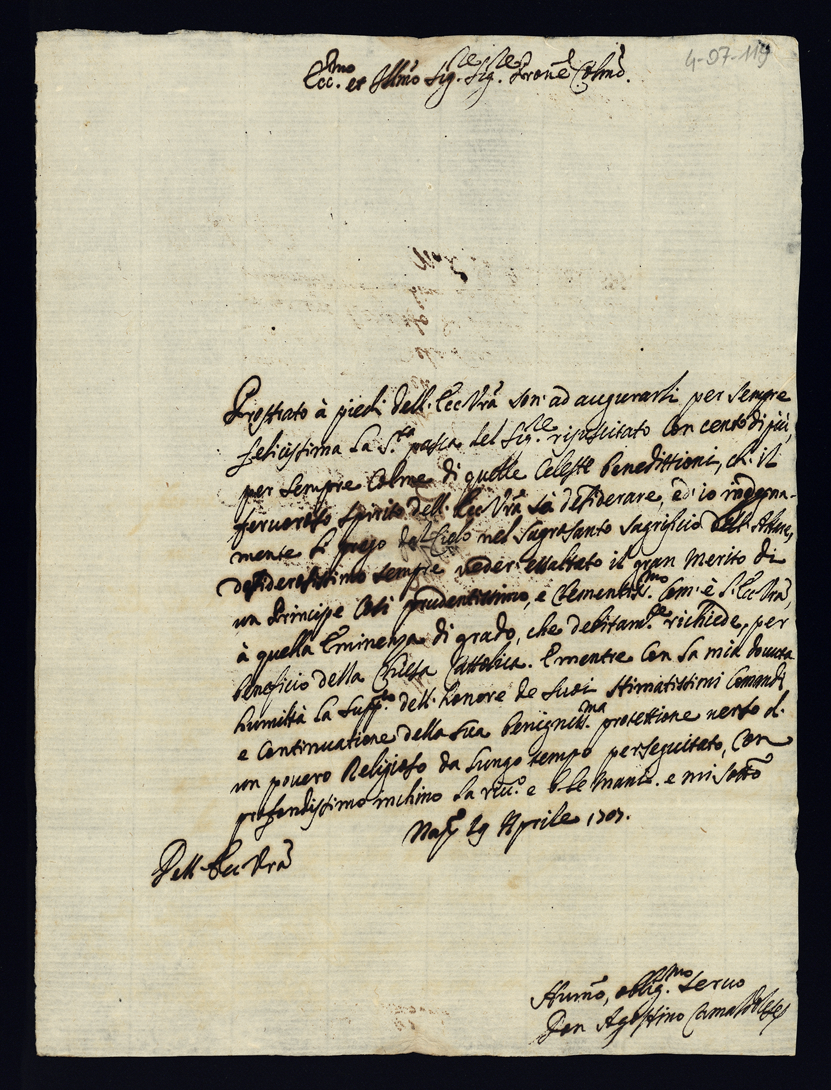 4-07-119
Ecc.mo et Illmo Sig.re Sig.re Prone Colmo.
Prostrato à piedi dell'Ecc Vra son' ad augurarli per sempre
felicissima la S.ta pasca del Sig.re risuscitato con cento di più,
per sempre colme di quelle Celeste benedittioni, ch'il
fervoroso spirito dell'Ecc Vra sà desiderare, ed' io
mente li prego dal Cielo nel sagrosanto sagrificio dell'Altare,
desiderosissimo sempre veder' essaltato il gran merito di
un Principe così prudentissimo, e Clementis.mo com' è S. Ecc Vra,
à quella Eminenza di grado, che debitam.te richiede, per
beneficio della Chiesa Cattolica. E mentre con la mia dovuta
humiltà la supp.co dell' honore de suoi stimatissimi Comandi
e Continuatione della sua benignis.ma protettione verso d'
un povero Religioso da lungo tempo perseguitato, con
profondissimo inchino la riv.o e b. le mani. e mi sotto
Nap. 29 Aprile 1707.
Dell'Ecc Vra
Humo, oblig.mo servo
Don Agostino Camaldolese